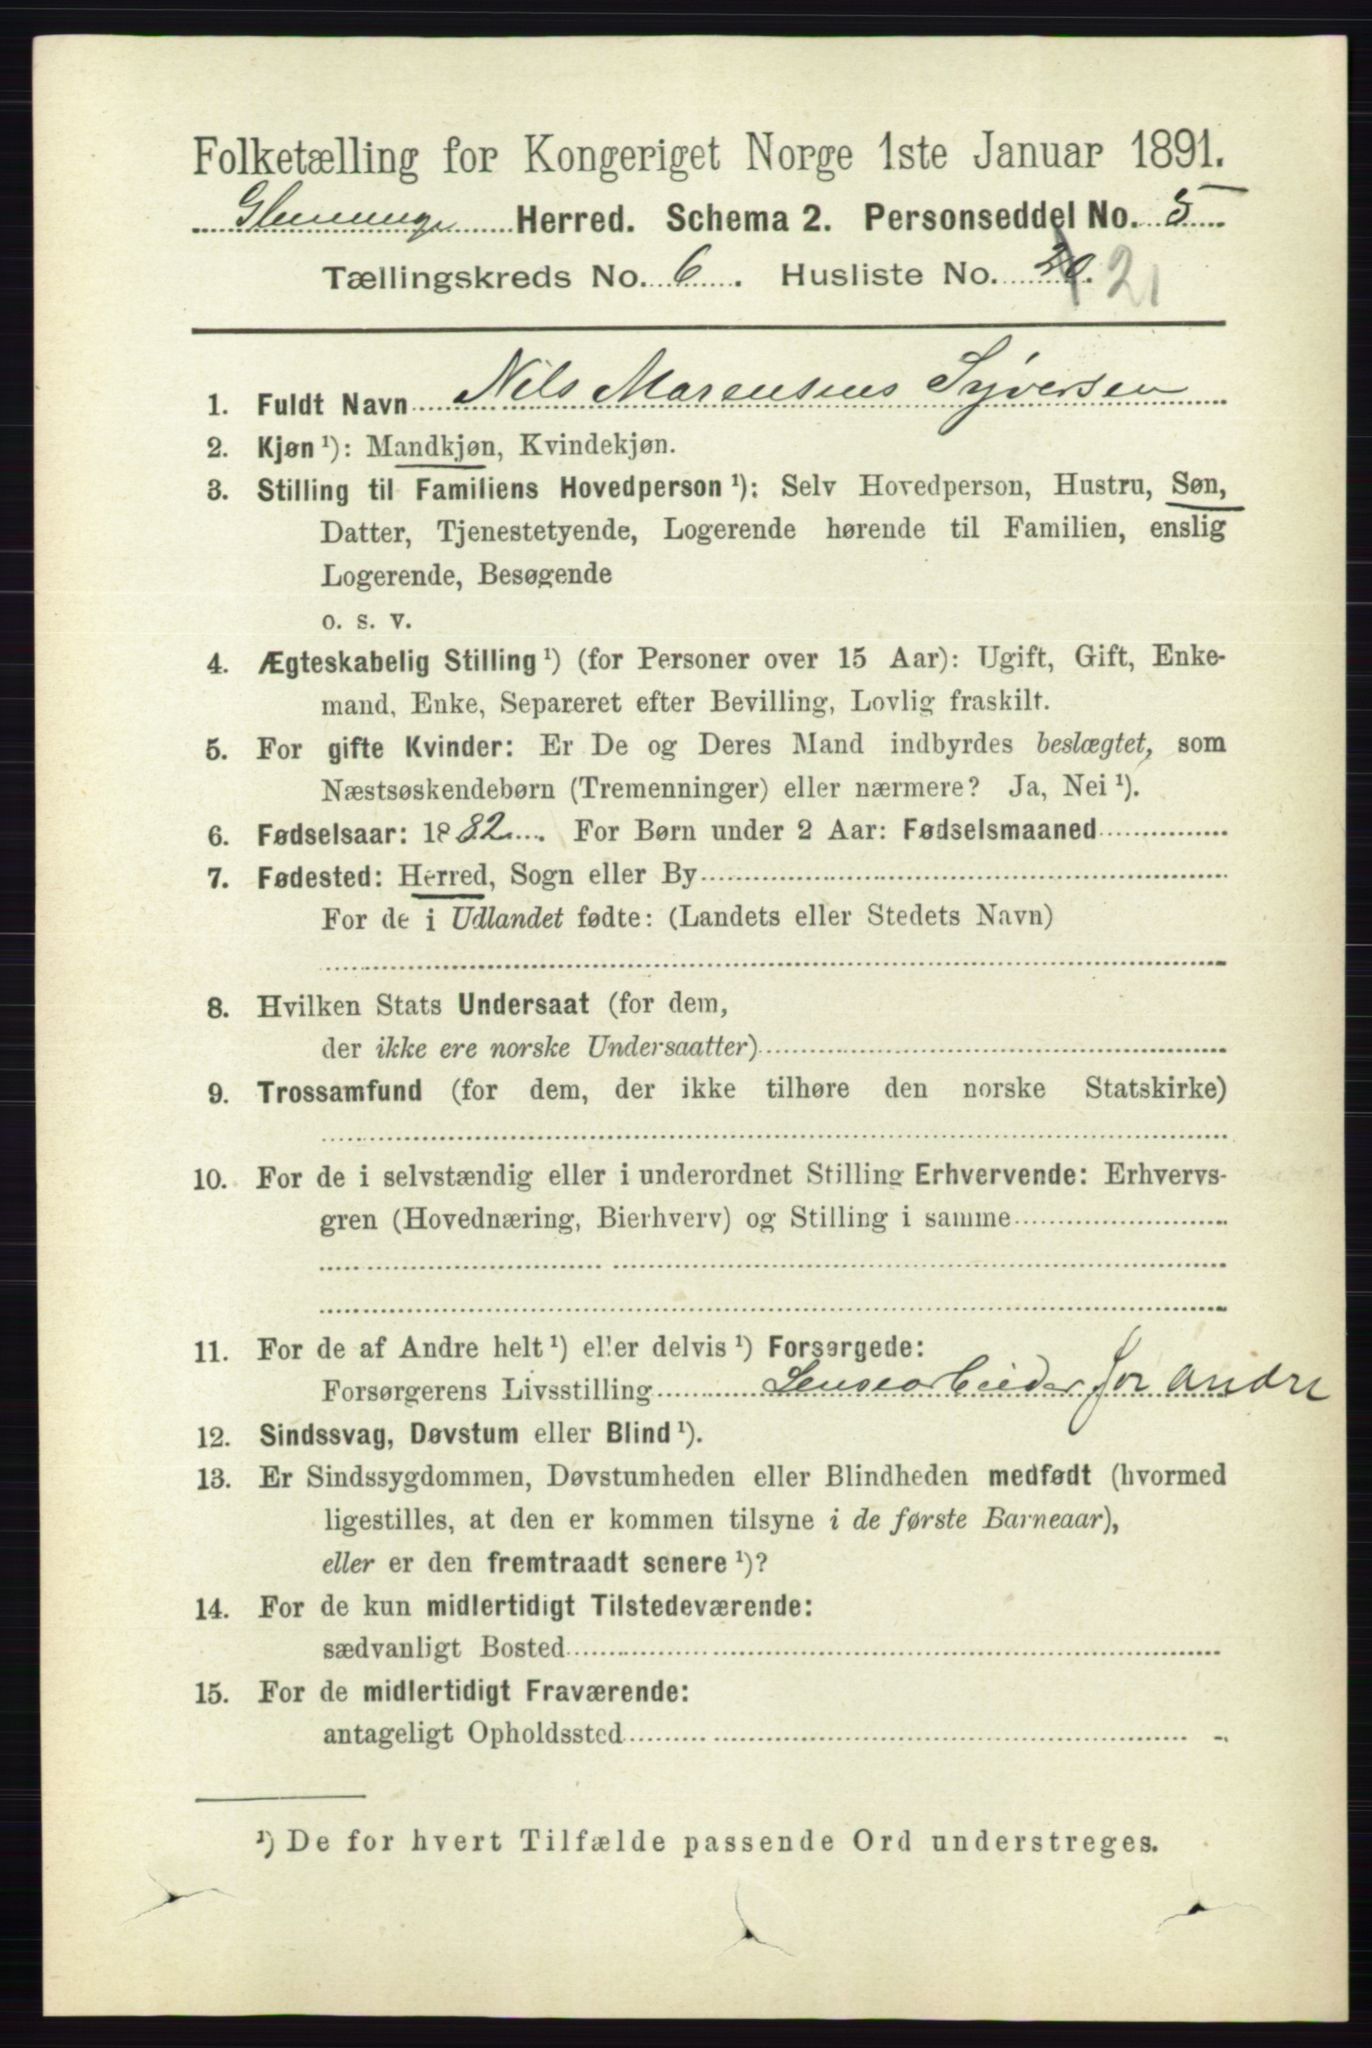 Folketælling for Kongeriget Norge 1ste Januar 1891.
Glemminge Herred. Schema 2. Personseddel No. 5
Tællingskreds No. 6. Husliste No. 20. 21
1. Fuldt Navn Nils Marensius Syversen
2. Kjøn ¹): Mandkjøn, Kvindekjøn.
3. Stilling til Familiens Hovedperson ¹): Selv Hovedperson, Hustru, Søn,
Datter, Tjenestetyende, Logerende hørende til Familien, enslig
Logerende, Besøgende
o. s. v.
4. Ægteskabelig Stilling ¹) (for Personer over 15 Aar): Ugift, Gift, Enke-
mand, Enke, Separeret efter Bevilling, Lovlig fraskilt.
5. For gifte Kvinder: Er De og Deres Mand indbyrdes beslægtet, som
Næstsøskendebørn (Tremenninger) eller nærmere? Ja, Nei ¹).
6. Fødselsaar: 1882. For Børn under 2 Aar: Fødselsmaaned
7. Fødested: Herred, Sogn eller By
For de i Udlandet fødte: (Landets eller Stedets Navn)
8. Hvilken Stats Undersaat (for dem,
der ikke ere norske Undersaatter)
9. Trossamfund (for dem, der ikke tilhøre den norske Statskirke)
10. For de i selvstændig eller i underordnet Stilling Erhvervende: Erhvervs-
gren (Hovednæring, Bierhverv) og Stilling i samme
11. For de af Andre helt ¹) eller delvis ¹) Forsørgede:
Forsørgerens Livsstilling Lensearbeider for andre
12. Sindssvag, Døvstum eller Blind ¹).
13. Er Sindssygdommen, Døvstumheden eller Blindheden medfødt (hvormed
ligestilles, at den er kommen tilsyne i de første Barneaar),
eller er den fremtraadt senere ¹)?
14. For de kun midlertidigt Tilstedeværende:
sædvanligt Bosted
15. For de midlertidigt Fraværende:
antageligt Opholdssted
¹) De for hvert Tilfælde passende Ord understreges.